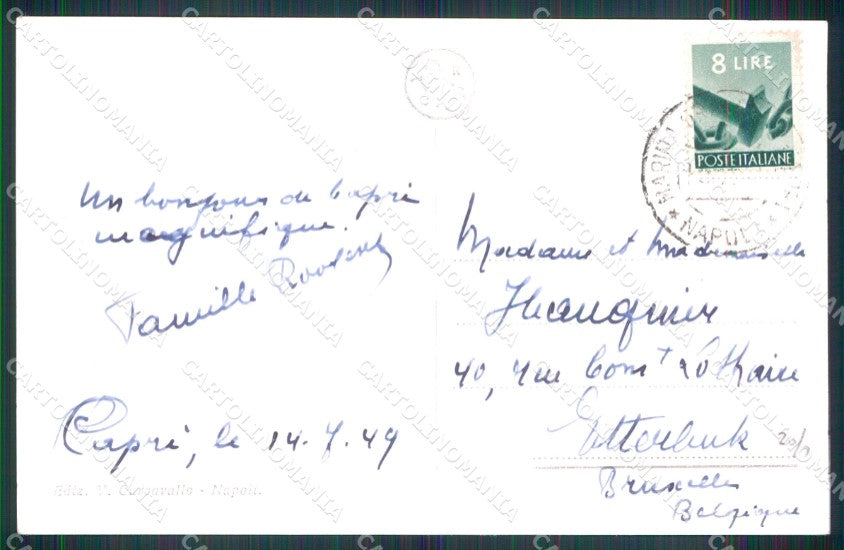 8 LIRE
POSTE ITALIANE
NAPOLI
Un bonjour de Capri
magnifique.
Famille
Capri, le 14.7.49
Ediz. V. Carcavallo - Napoli.
Madame et Mademoiselle
40, rue Comt Lothaire
Etterbeek
Bruxelles
Belgique
CARTOLINOMANIA